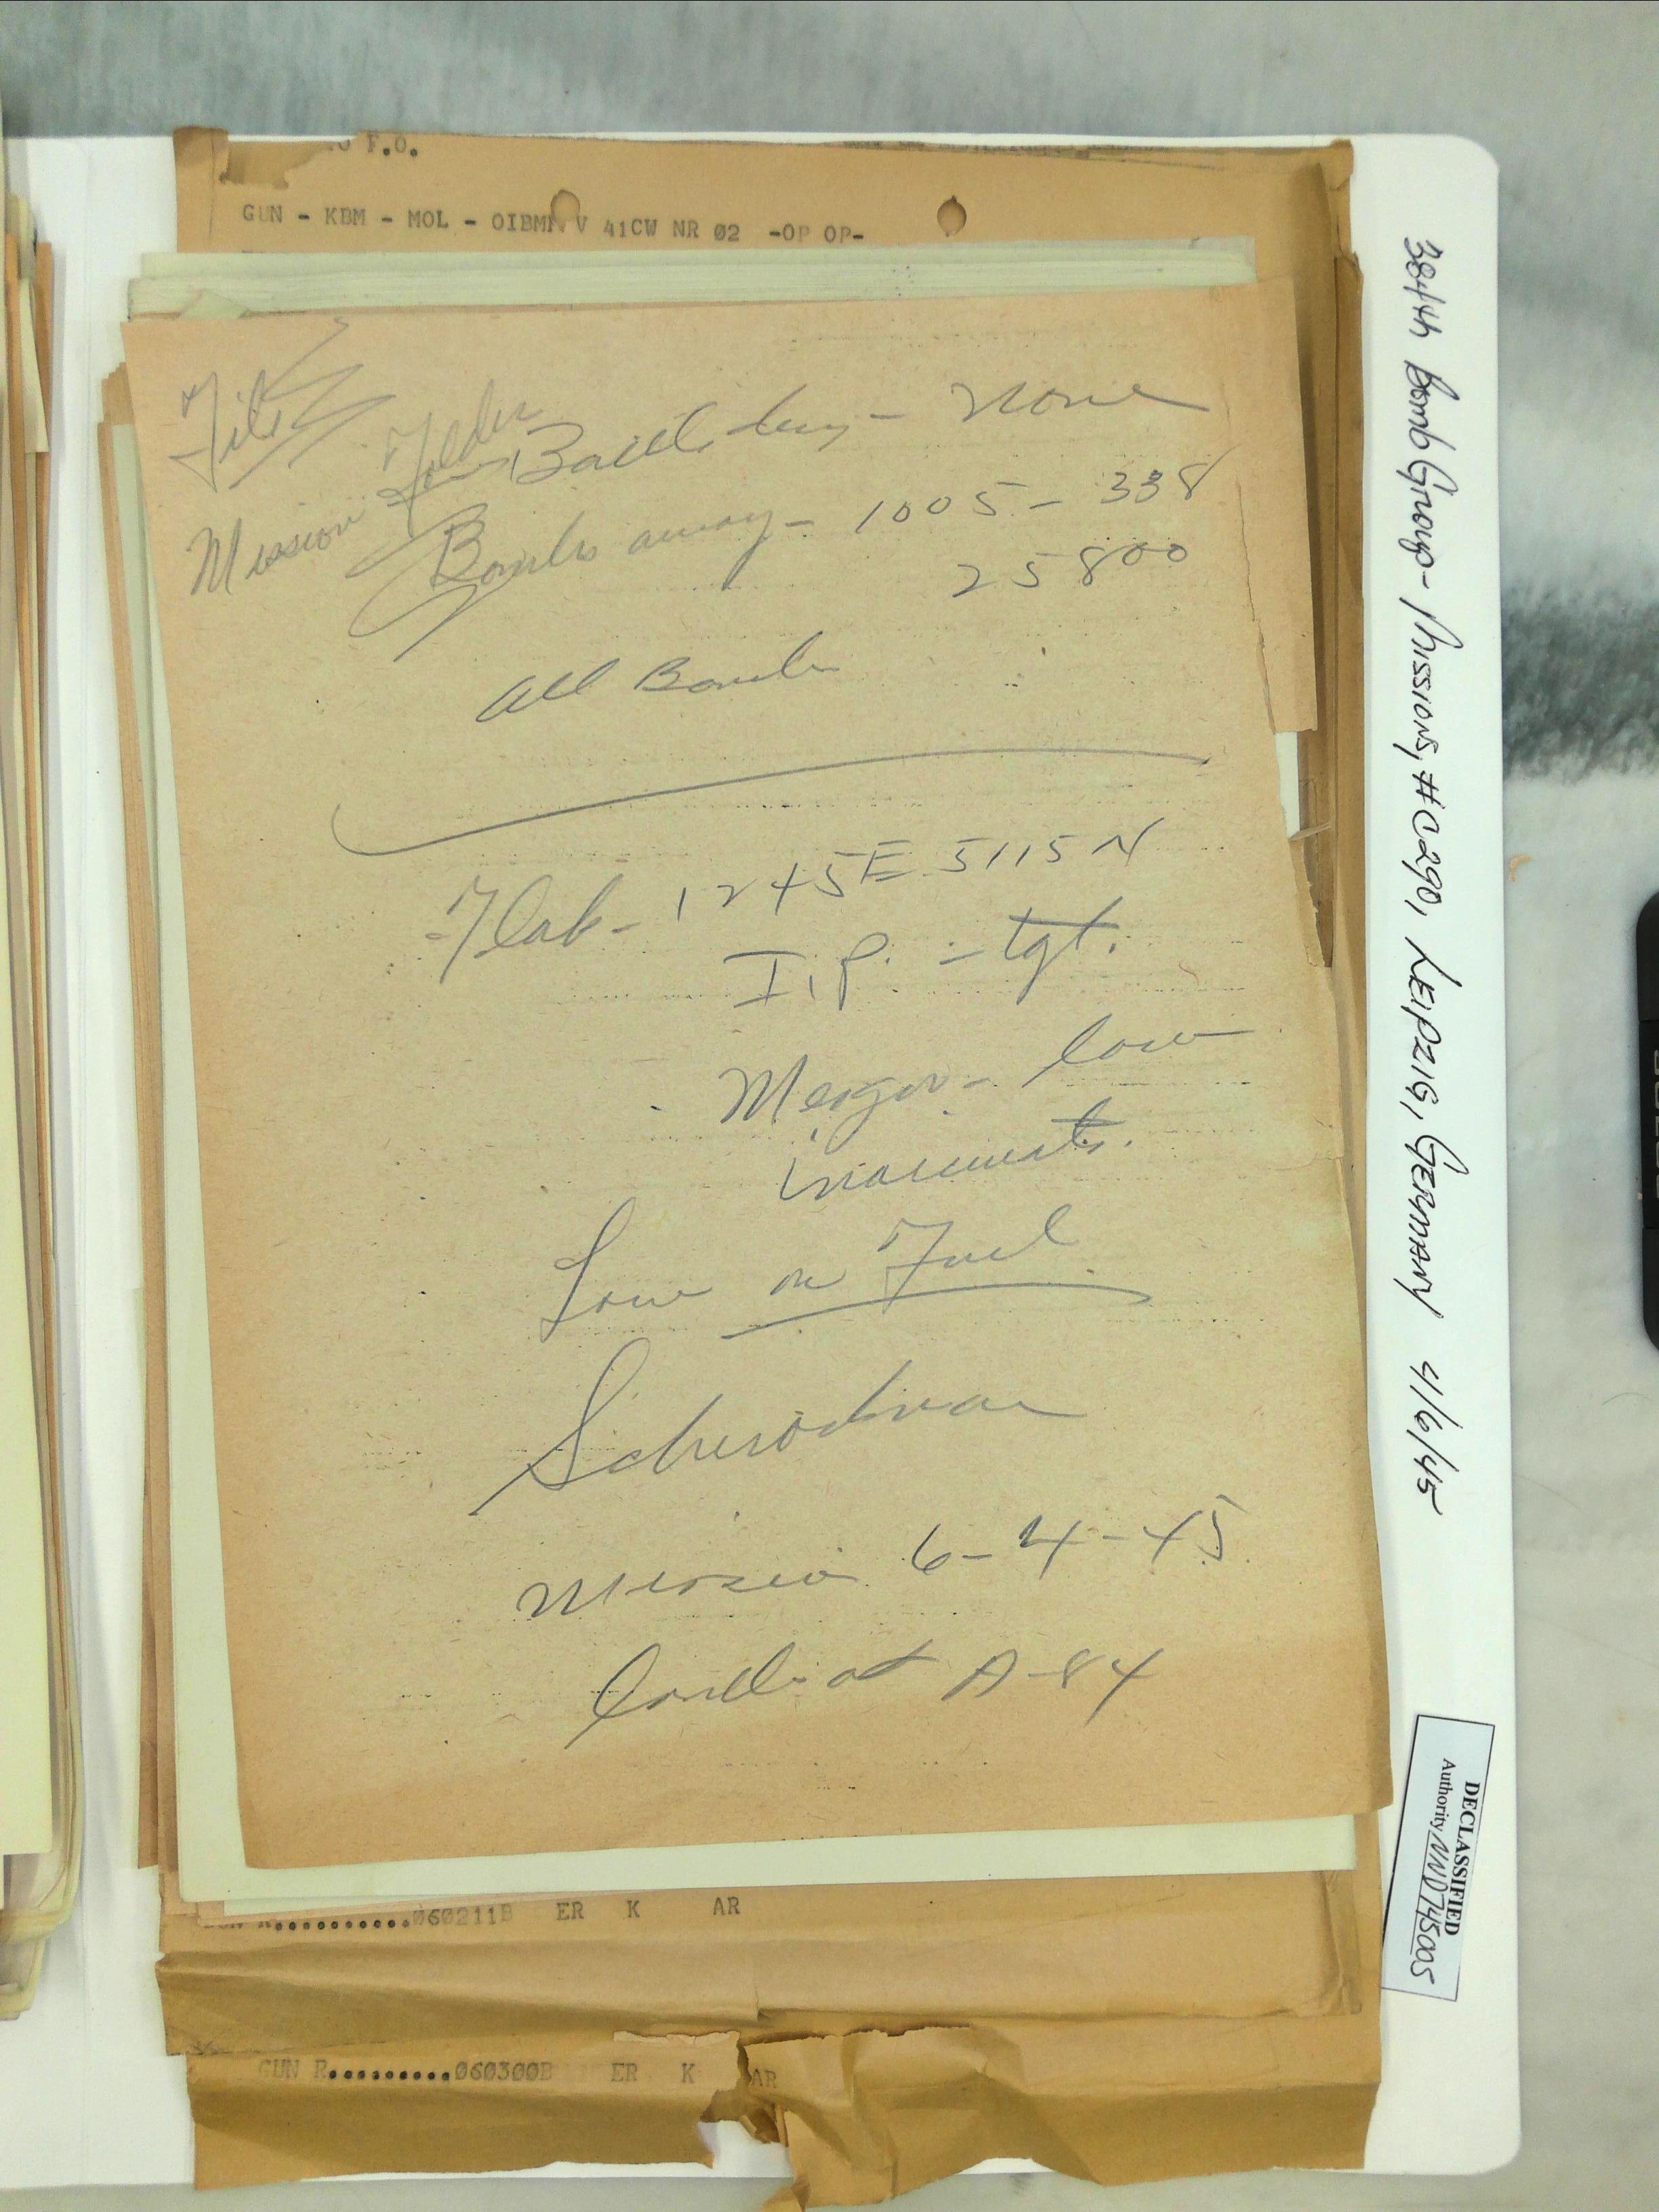 F.O.
GUN - KBM - MOL - V 41CW NR 02 -OP OP-
File
Mission Folder
Battle - None
Bombs away - 1005 - 338
25800
All Bombs
Flak - 1245E 5115N
I.P. - tgt.
Meager - low
inaccurate.
Low on Fuel
Mission 6-4-45
at A-84
060211B ER K AR
GUN R..........060300B ER K AR
384th Bomb Group - Missions, #0290, LEIPZIG, GERMANY 4/6/45
DECLASSIFIED
Authority NND745005